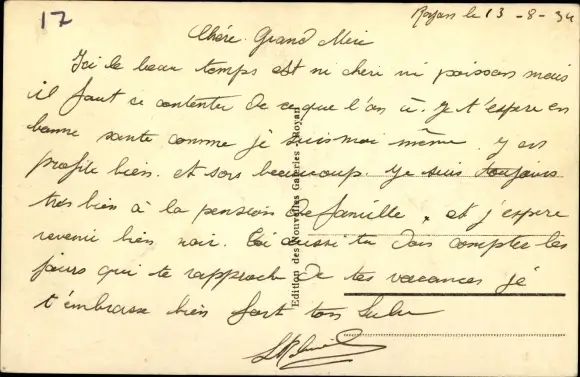 17
Royan le 13 - 8 - 34
Chére Grand Mère
Ici le beau temps est ni cheri ni poisson mais
il faut ce contenter de ce que l'on à. Je t'espere en
bonne sante comme je suis moi même. J'en
profite bien. et sors beaucoup. Je suis toujours
très bien à la pension de famille, et j'espere
revenir bien noir. Toi aussi tu dois compter les
jours qui te rapproch de tes vacances je
t'embrasse bien fort ton Lulu
Edition des Nouvelles Galeries - Royan